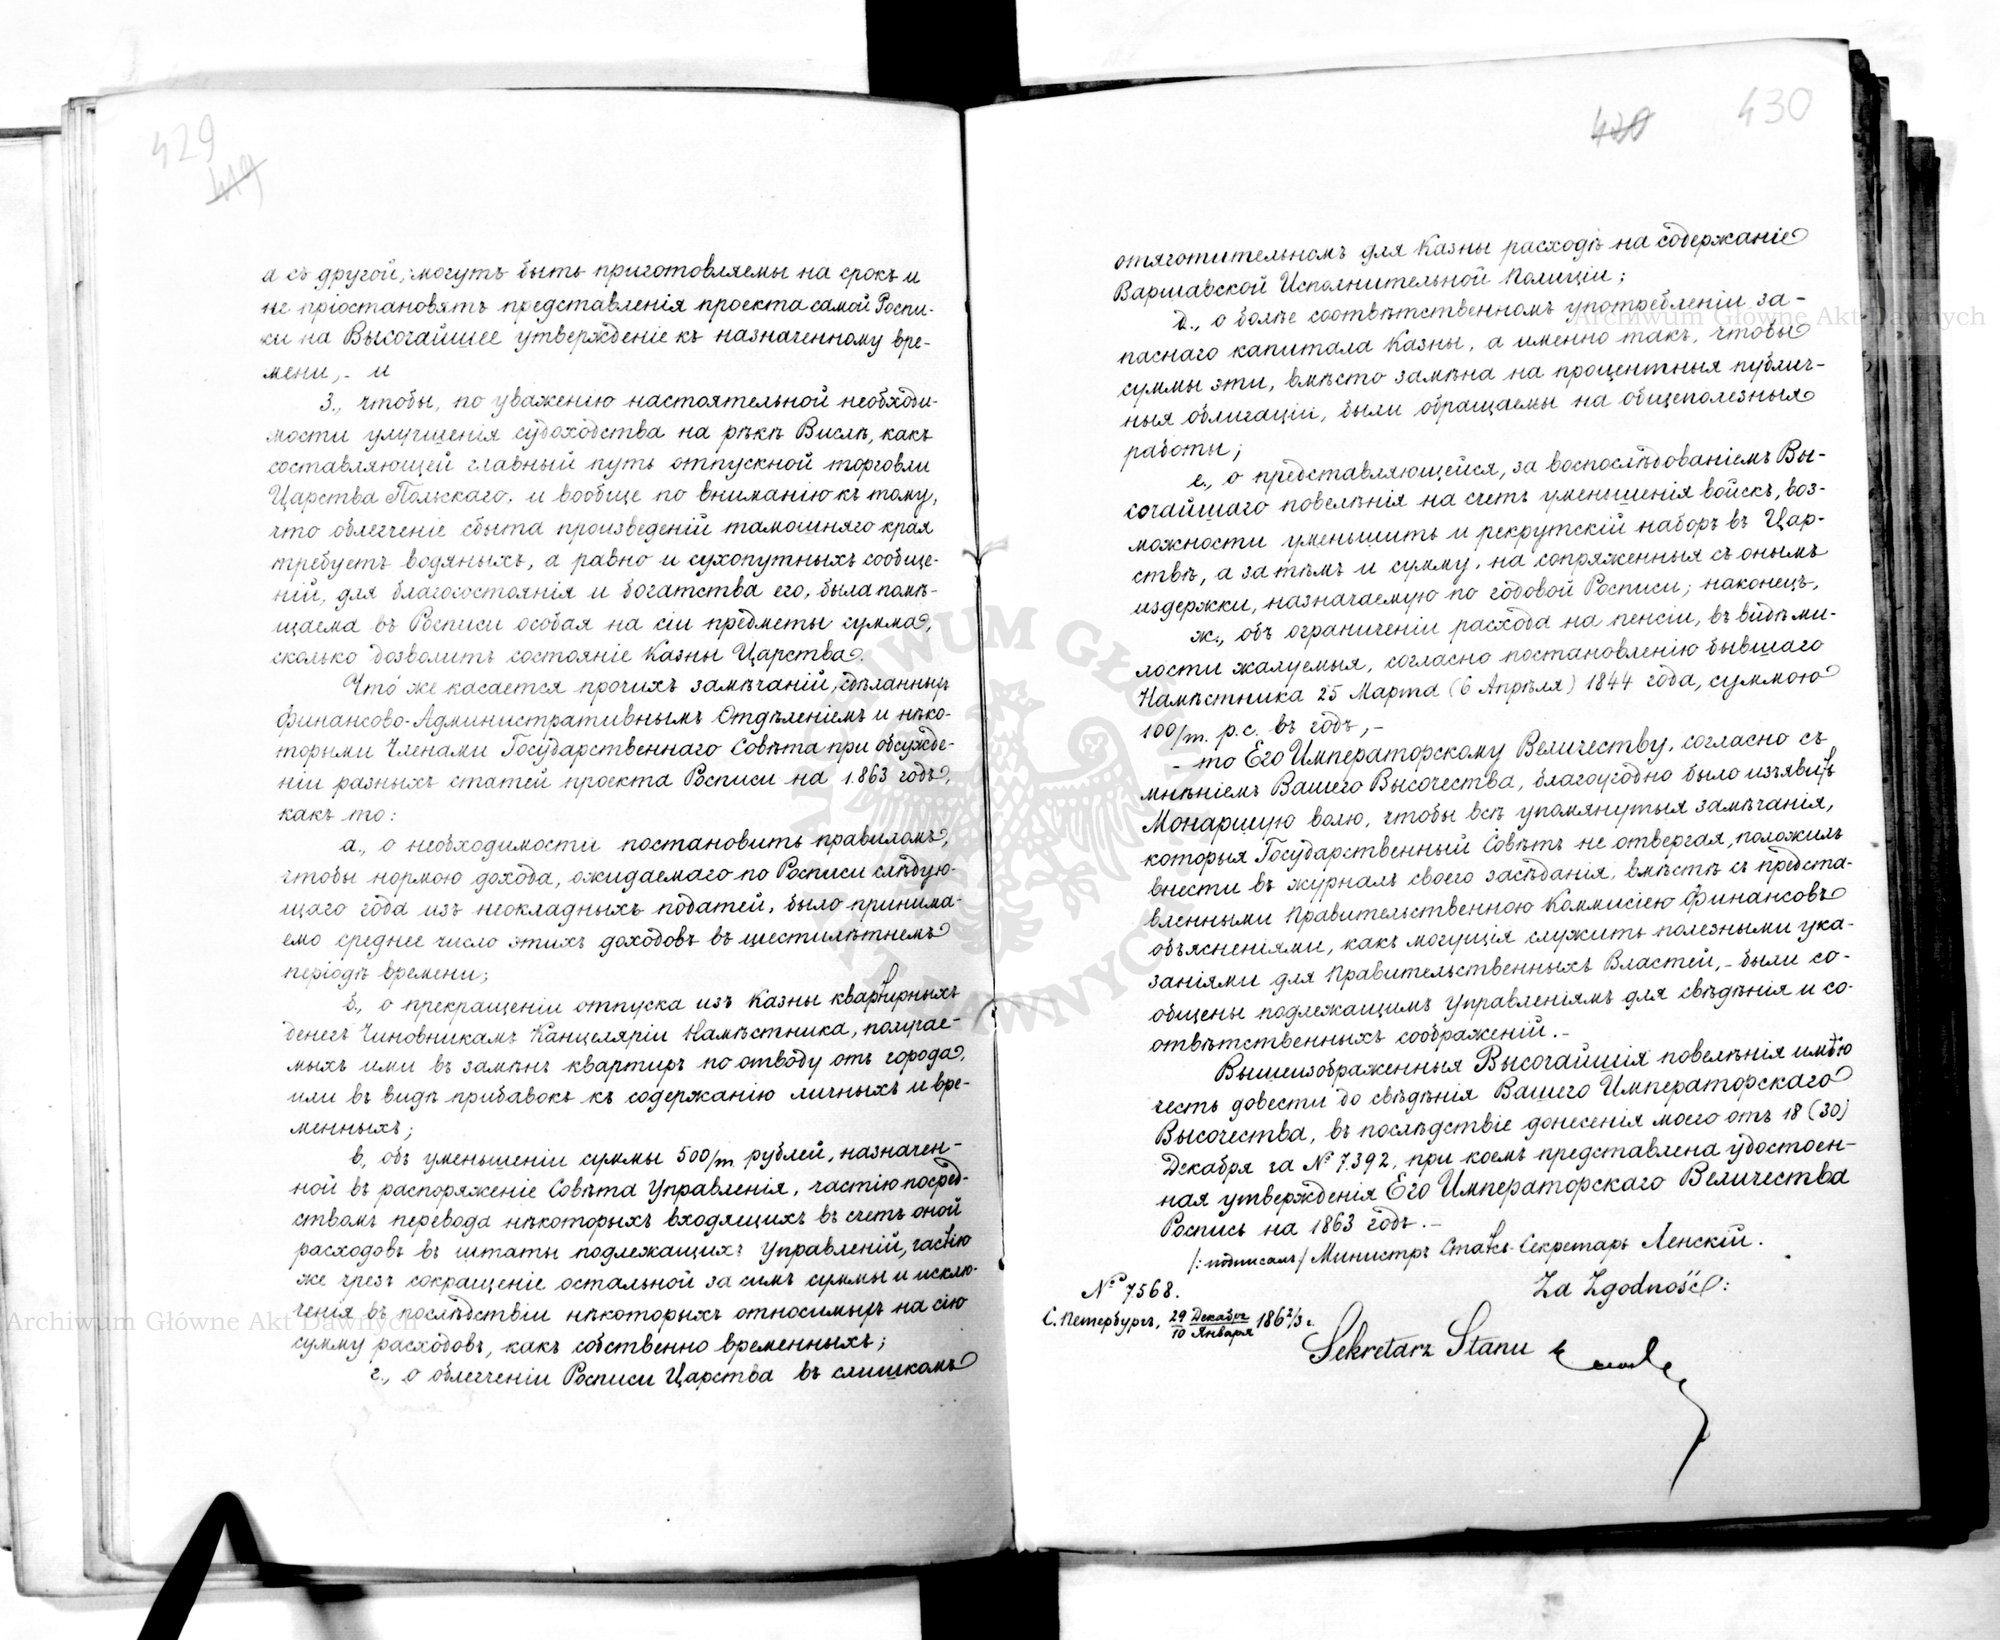 429
419
а съ другой, могутъ быть приготовляемы на срокъ и
не пріостановятъ представленія проекта самой Роспи-
си на Высочайшее утвержденіе къ назначенному вре-
мени, - и
3., чтобы, по уваженію настоятельной необходи-
мости улучшенія судоходства на рѣкѣ Вислѣ, какъ
составляющей главный путь отпускной торговли
Царства Польскаго, и вообще по вниманію къ тому,
что облегченіе сбыта произведеній тамошняго края
требуетъ водяныхъ, а равно и сухопутныхъ сообще-
ній, для благосостоянія и богатства его, была помѣ-
щаема въ Росписи особая на сіи предметы сумма,
сколько дозволитъ состояніе Казны Царства.
Что же касается прочихъ замѣчаній, сдѣланныхъ
Финансово-Административнымъ Отдѣленіемъ и нѣко-
торыми Членами Государственнаго Совѣта при обсужде-
ніи разныхъ статей проекта Росписи на 1863 годъ,
какъ то:
а., о необходимости постановить правиломъ,
чтобы нормою дохода, ожидаемаго по Росписи слѣдую-
щаго года изъ неокладныхъ податей, было принима-
емо среднее число этихъ доходовъ въ шестилѣтнемъ
періодѣ времени;
б., о прекращеніи отпуска изъ Казны квартирныхъ
денегъ Чиновникамъ Канцеляріи Намѣстника, получае-
мыхъ ими въ замѣнъ квартиръ по отводу отъ города,
или въ видѣ прибавокъ къ содержанію личныхъ и вре-
менныхъ;
в., объ уменьшеніи суммы 500/m. рублей, назначен-
ной въ распоряженіе Совѣта Управленія, частію посред-
ствомъ перевода нѣкоторыхъ входящихъ въ счетъ оной
расходовъ въ штаты подлежащихъ Управленій, частію
же чрезъ сокращеніе остальной за симъ суммы и исклю-
ченія въ послѣдствіи нѣкоторыхъ относимыхъ на сію
сумму расходовъ, какъ собственно временныхъ;
г., о облегченіи Росписи Царства въ слишкомъ
420
430
отяготительномъ для Казны расходѣ на содержаніе
Варшавской Исполнительной Полиціи;
д., о болѣе соотвѣтственномъ употребленіи за-
паснаго капитала Казны, а именно такъ, чтобы
суммы эти, вмѣсто замѣна на процентныя публич-
ныя облигаціи, были обращаемы на общеполезныя
работы;
е., о представляющейся, за воспослѣдованіемъ Вы-
сочайшаго повелѣнія на счетъ уменьшенія войскъ, воз-
можности уменьшить и рекрутскій наборъ въ Цар-
ствѣ, а затѣмъ и сумму, на сопряженныя съ онымъ
издержки, назначаемую по годовой Росписи; наконецъ,
ж., объ ограниченіи расхода на пенсіи, въ видѣ ми-
лости жалуемыя, согласно постановленію бывшаго
Намѣстника 25 Марта (6 Апрѣля) 1844 года, суммою
100/m. р.с. въ годъ, -
- то Его Императорскому Величеству, согласно съ
мнѣніемъ Вашего Высочества, благоугодно было изъявить
Монаршую волю, чтобы всѣ упомянутыя замѣчанія,
которыя Государственный Совѣтъ не отвергая, положилъ
внести въ журналъ своего засѣданія, вмѣстѣ съ предста-
вленными Правительственною Коммисіею Финансовъ
объясненіями, какъ могущія служить полезными ука-
заніями для Правительственныхъ Властей, - были со-
общены подлежащимъ Управленіямъ для свѣдѣнія и со-
отвѣтственныхъ соображеній. -
Вышеизображенныя Высочайшія повелѣнія имѣю
честь довести до свѣдѣнія Вашего Императорскаго
Высочества, въ послѣдствіе донесенія моего отъ 18 (30)
Декабря за № 7.392, при коемъ представлена удостоен-
ная утвержденія Его Императорскаго Величества
Роспись на 1863 годъ. -
/: подписалъ / Министръ Статсъ-Секретарь Ленскій.
№ 7568.
Za Zgodność:
С. Петербургъ, 29 Декабря / 10 Января 186 2/3 г.
Sekretarz Stanu
Archiwum Główne Akt Dawnych
Archiwum Główne Akt Dawnych
Archiwum Główne Akt Dawnych
ARCHIWUM GŁÓWNE AKT DAWNYCH